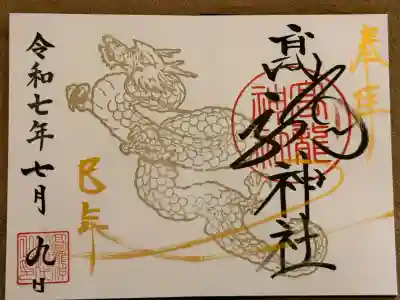 奉拝
高龍神社
高龍
神社
巳年
令和七年七月九日